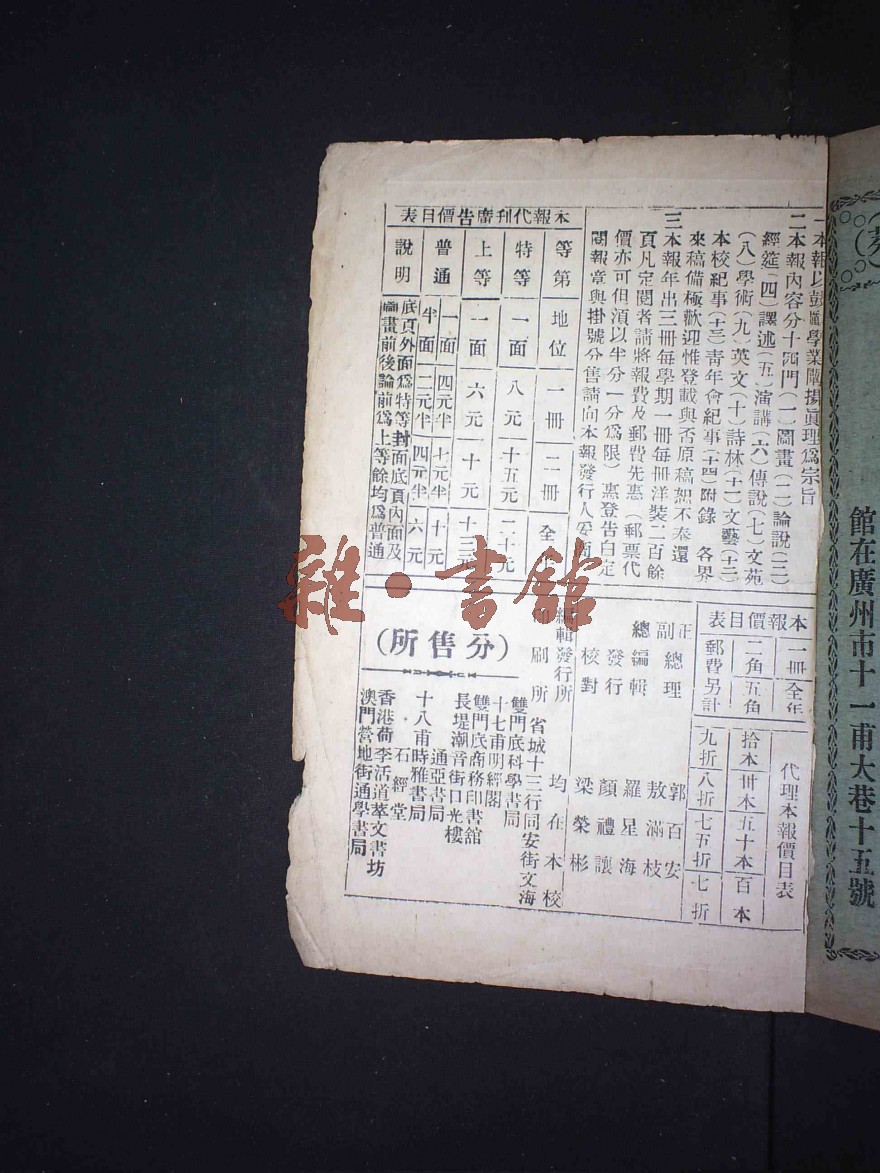 一本報以鼓勵學業闡揚眞理爲宗旨
二本報內容分十四門(一)圖畫(二)論說(三)
經筵(四)譯述(五)演講(六)傳說(七)文苑
(八)學術(九)英文(十)詩林(十一)文藝(十二)
本校紀事(十三)靑年會紀事(十四)附錄 各界
來稿備極歡迎惟登載與否原稿恕不奉還
三本報年出三冊每學期一冊每冊洋裝二百餘
頁凡定閱者請將報費及郵費先惠(郵票代
價亦可但須以半分一分爲限)惠登告白定
閱報章與掛號分售請向本報發行人
本報代刋廣吿價目表
等第 地位 一冊 二冊 全年
特等 一面 八元 十五元 二十元
上等 一面 六元 十元 十三元
普通 一面 四元半 七元半 十元
半面 二元半 四元半 六元
說明 底頁外面爲特等封面底頁內面及
圖畫前後論前爲上等餘均爲普通
本報價目表
一冊 全年
二角 五角
郵費另計
代理本報價目表
拾本 卅本 五十本 百本
九折 八折 七五折 七折
正副總理 郭百安 敖滿枝
總編輯 羅星海
發行 顏禮讓
校對 梁榮彬
編輯發行所 均在本校
印刷所 省城十三行同安街文海
(分售所)
雙門底科學書局
十七甫明經閣
雙門底商務印書舘
長堤潮音街口光樓
通亞書局
十八甫時雅書局
石經堂
香港荷李活道萃文書坊
澳門營地街通學書局
館在廣州市十一甫大巷十五號
雜·書館